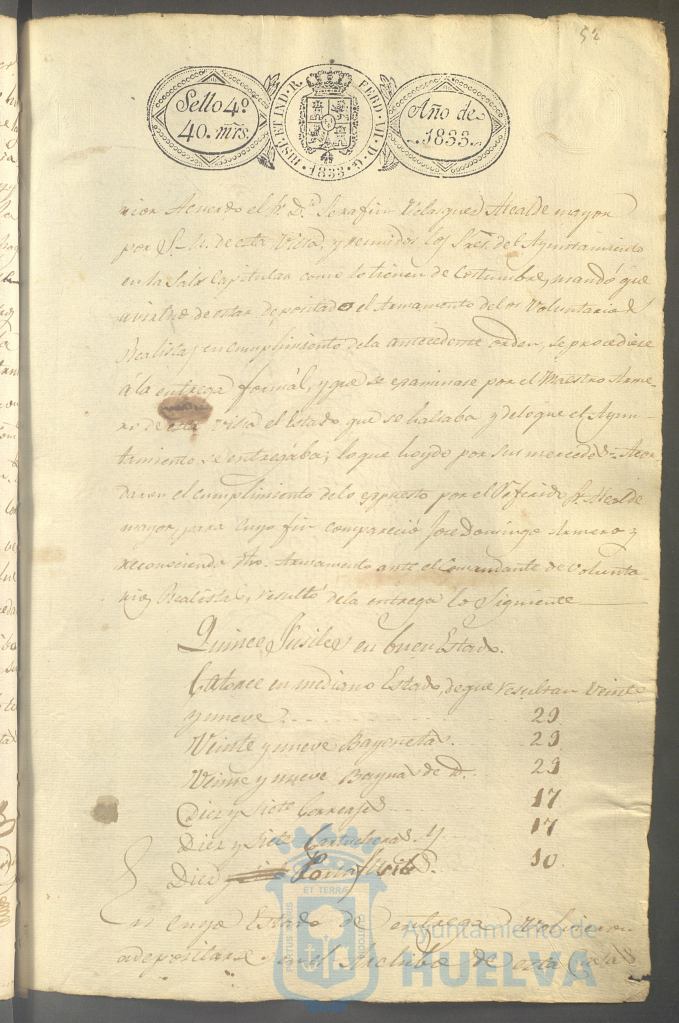 52
Sello 4º
40. mrs.
HISP. ET IND. R. FERD. VII. D. G.
1833
Año de
1833.
rior Acuerdo el Sr. Dn. Serafin Velasques Alcalde mayor
por S. M. de esta Villa, y reunidos los Sres. del Ayuntamiento
en la Sala Capitular como lo tienen de Costumbre, mandó que
de estar depositado el Armamento de los Voluntarios
Realistas, en cumplimiento de la antecedente orden, se procediese
á la entrega formál, y que se esaminase por el Maestro Arme-
ro de esta Villa el Estado que se hallaba y de lo que el Ayun-
tamiento se entregába; lo que hoydo por sus mercedes = Acor-
daron el cumplimiento de lo espuesto por el Referido Sr. Alcalde
mayor, para cuyo fin compareció Jose Domingo Armero y
reconociendo dho. Armamento ante el Comandante de Volunta-
rios Realistas, resultó de la entrega lo Siguiente
Quince Fusiles en buen Estado.
Catorce en mediano Estado, de que resultan Veinte
y nueve 29
Veinte y nueve Bayonetas. 29
Veinte y nueve Baynas de D. 29
Diez y Siete Correajes 17
Diez y Siete Cartucheras. y 17
Diez Porta fusiles. 10
En cuyo Estado de entrega
a depositarse en el Archibo de estas Casas
PORTUS MARIS ET TERRÆ CUSTODIA
Ayuntamiento de
HUELVA